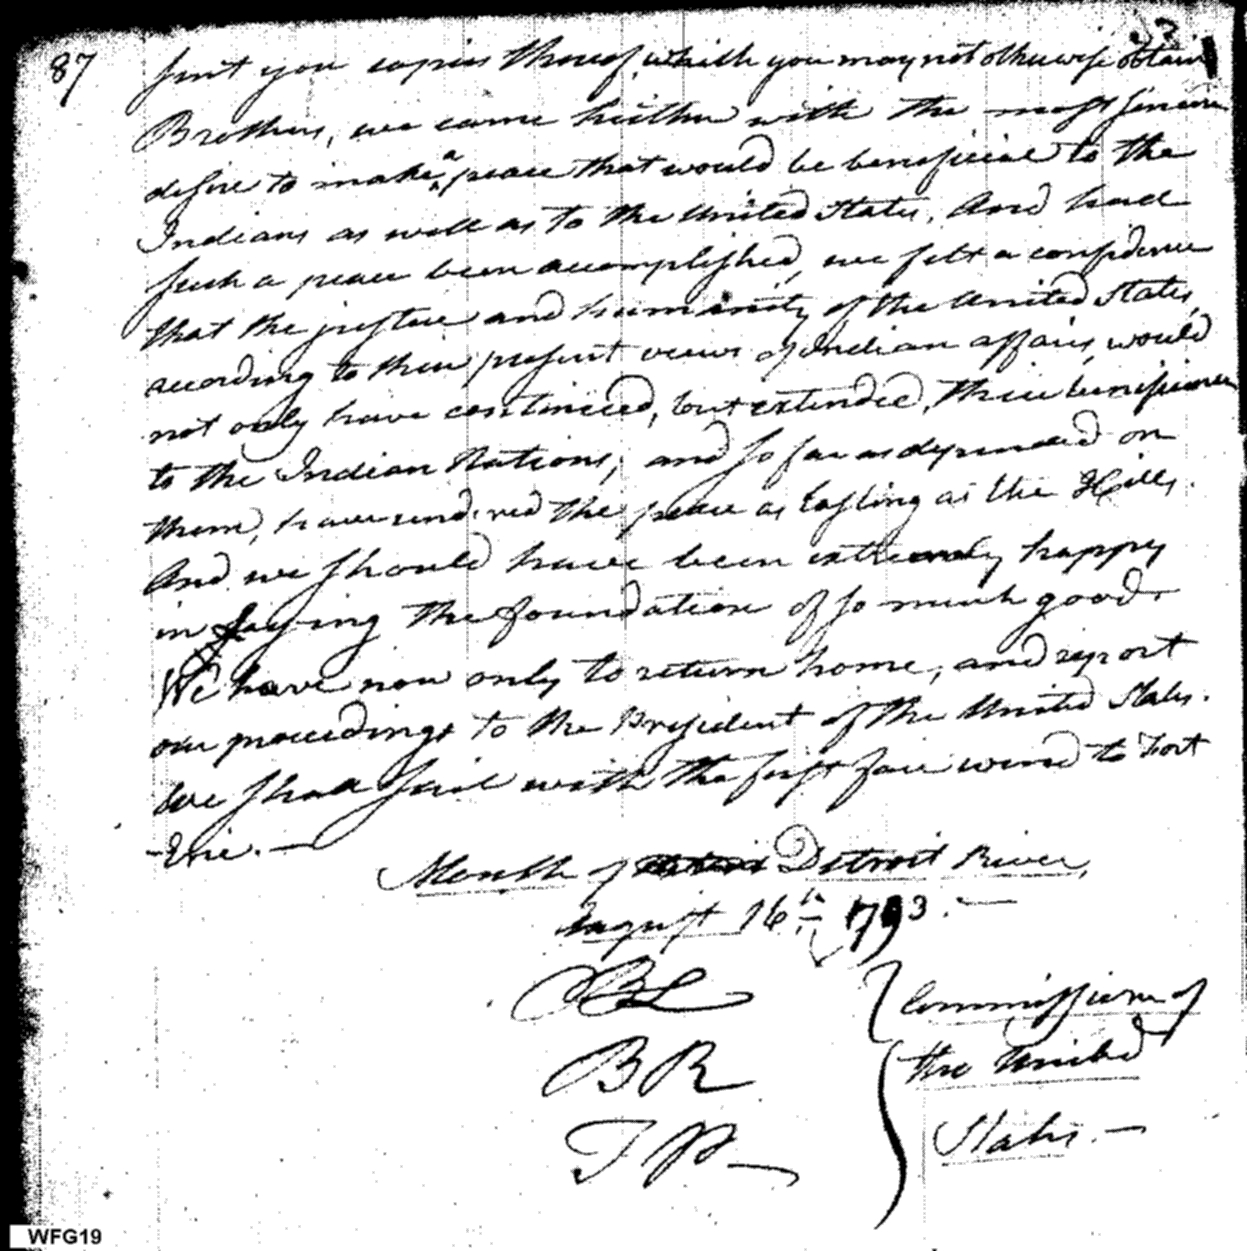 53
87 sent you copies thereof, which you may not otherwise obtain
Brothers, we came hither with the most sincere
desire to make a peace that would be beneficial to the
Indians as well as to the United States. And had
such a peace been accomplished, we felt a confidence
that the justice and humanity of the United States,
according to their present views of Indian affairs, would
not only have continued, but extended, their beneficence
to the Indian Nations; and so far as depended on
them, have rendered the peace as lasting as the Hills.
And we should have been extremely happy
in laying the foundation of so much good.
We have now only to return home, and report
our proceedings to the President of the United States.
We shall sail with the first fair wind to Fort
Erie. —
Mouth of Detroit River,
August 16th 1793. —
BL
BR
TP
Commissioners of
the United
States. —
WFG19